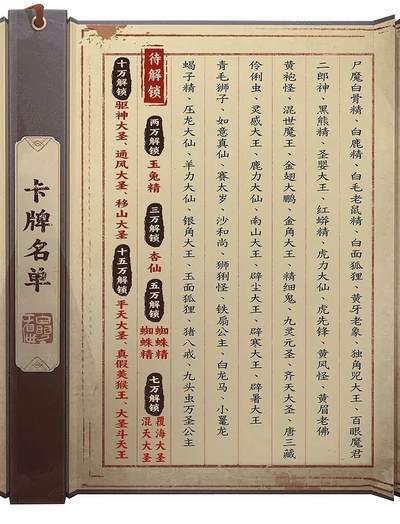 尸魔白骨精、白鹿精、白毛老鼠精、白面狐狸、黄牙老象、独角兕大王、百眼魔君
二郎神、黑熊精、圣婴大王、红蟒精、虎力大仙、虎先锋、黄风怪、黄眉老佛
黄袍怪、混世魔王、金翅大鹏、金角大王、精细鬼、九灵元圣、齐天大圣、唐三藏
伶俐虫、灵感大王、鹿力大仙、南山大王、辟尘大王、辟寒大王、辟暑大王
青毛狮子、如意真仙、赛太岁、沙和尚、狮猁怪、铁扇公主、白龙马、小鼍龙
蝎子精、压龙大仙、羊力大仙、银角大王、玉面狐狸、猪八戒、九头虫万圣公主
待解锁
两万解锁 玉兔精 三万解锁 杏仙 五万解锁 蜘蛛精 蜘蛛精 七万解锁 覆海大圣 混天大圣
十万解锁 驱神大圣、通风大圣、移山大圣 十五万解锁 平天大圣、真假美猴王、大圣斗天王
卡牌名单